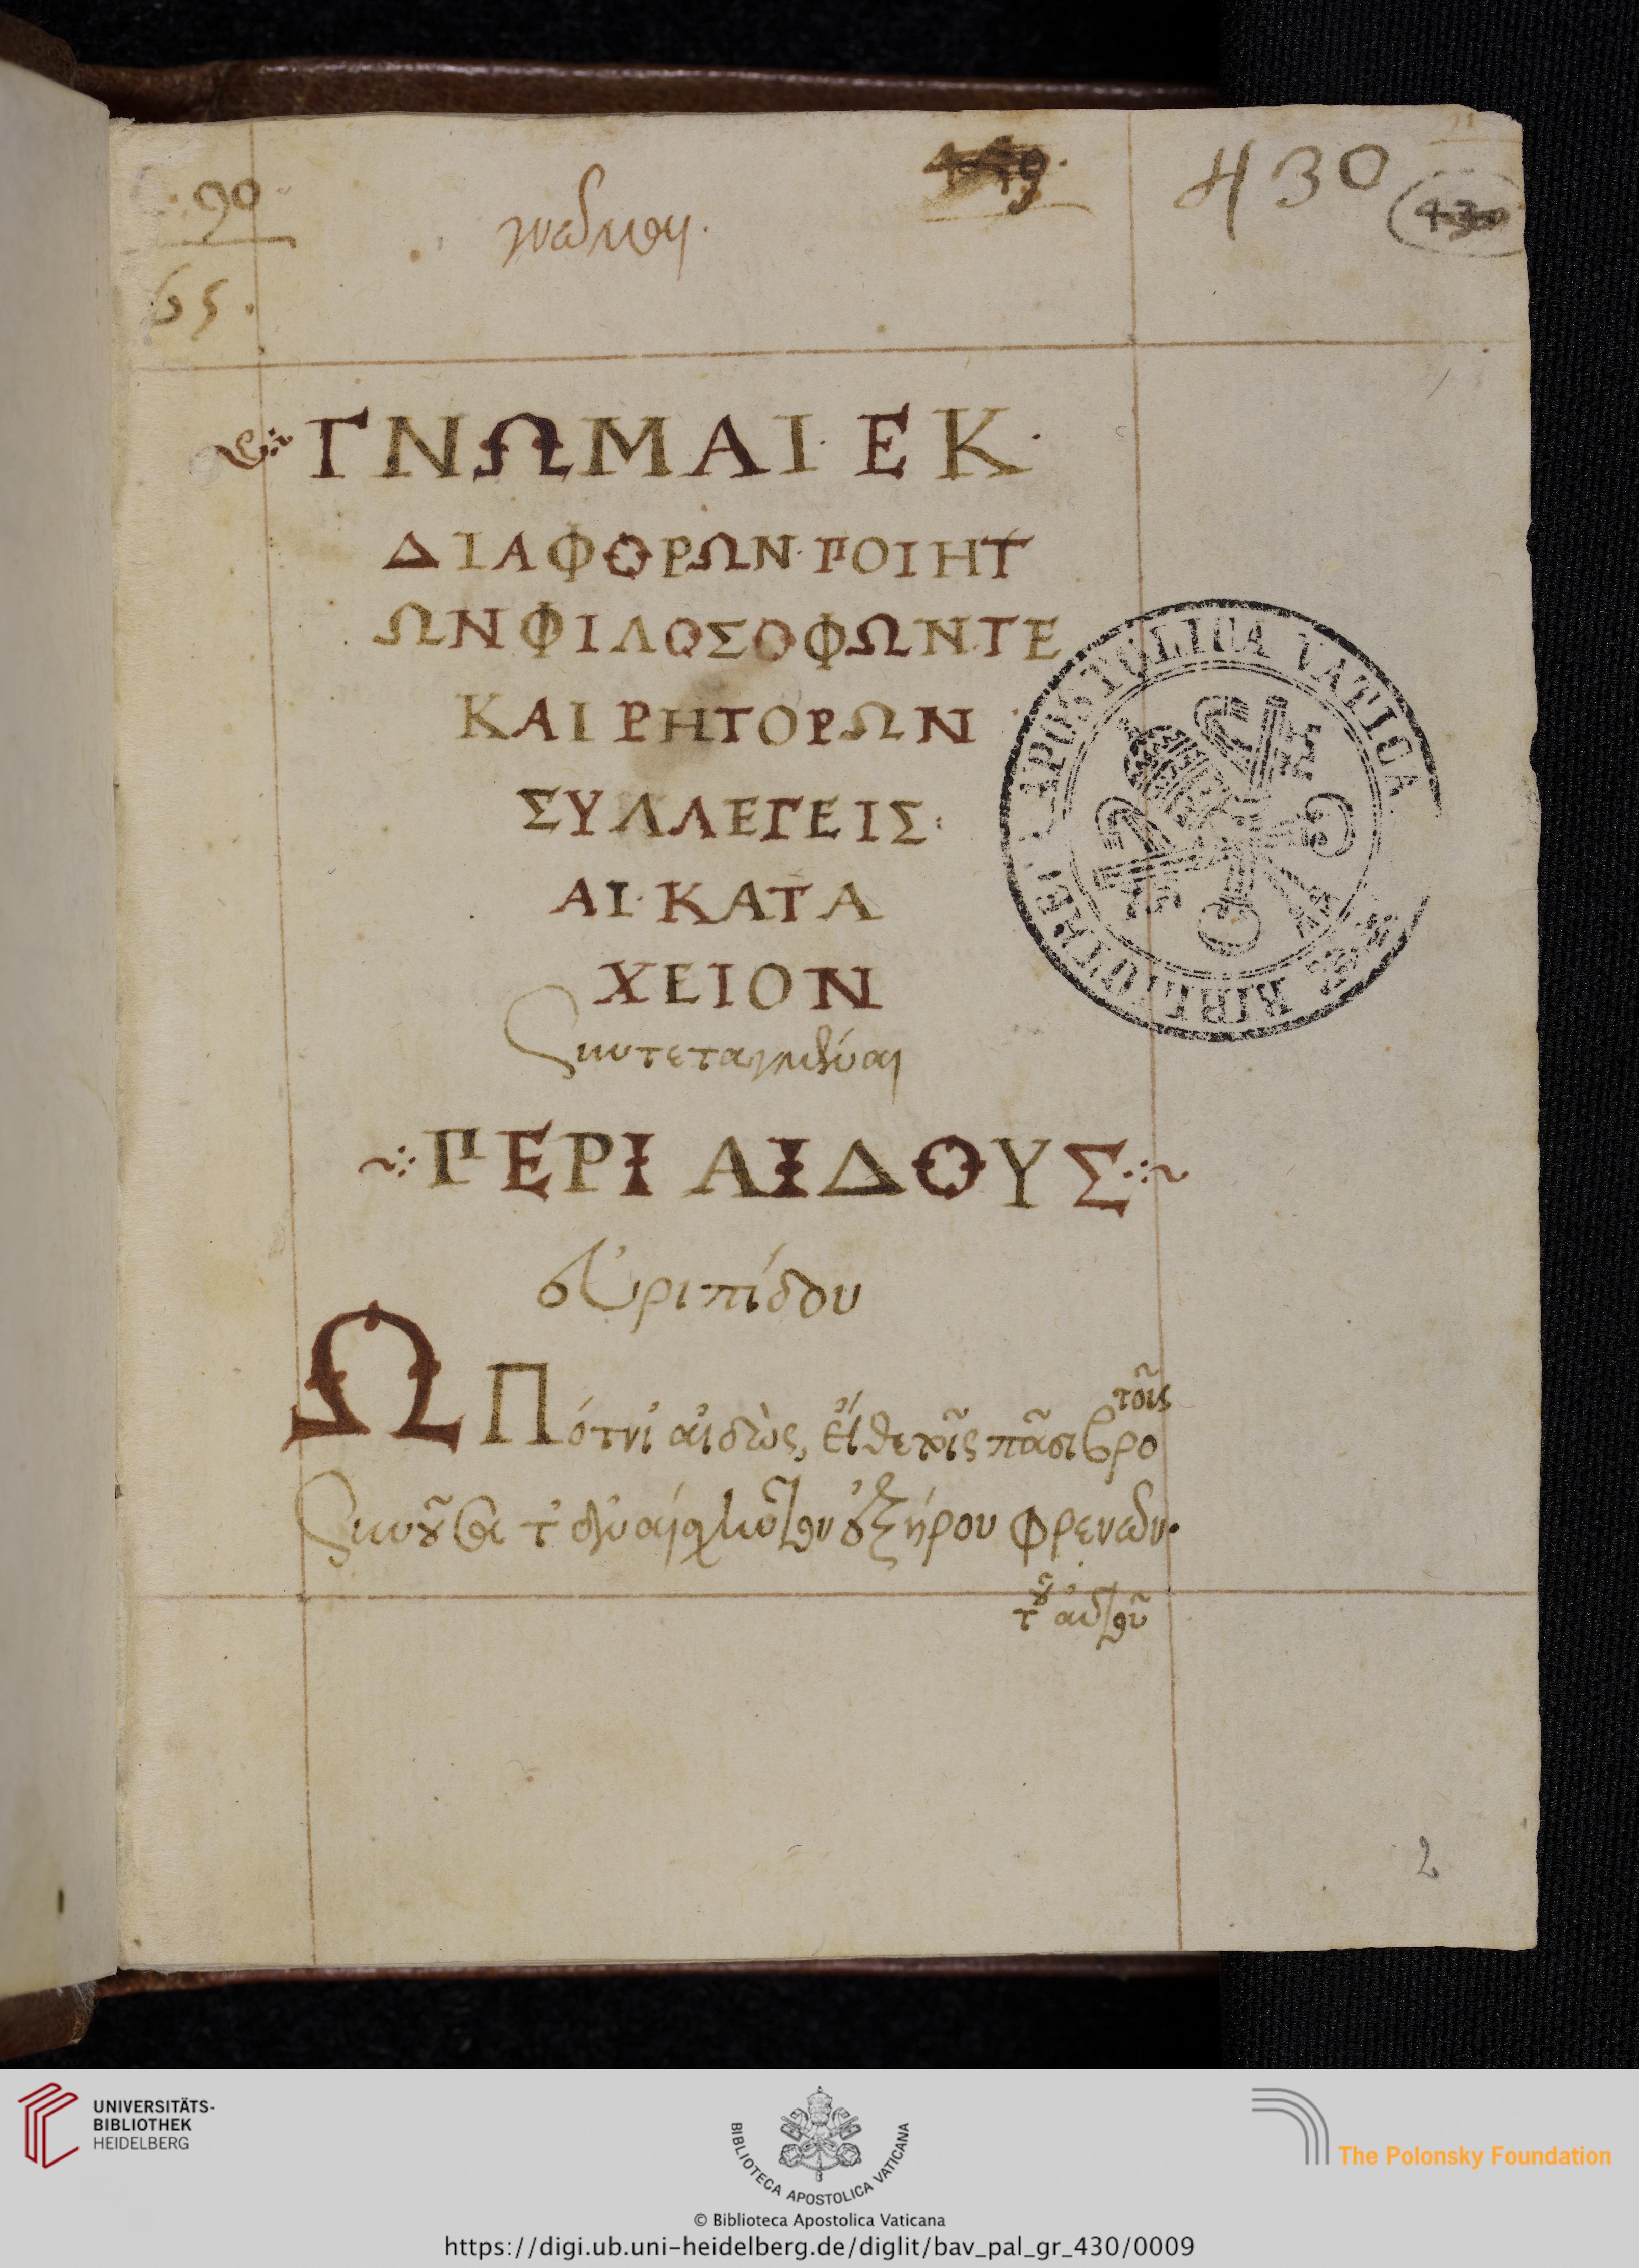 90
449.
430
430
γνῶμαι.
65.
ΓΝΩΜΑΙ· ΕΚ·
ΔΙΑΦΟΡΩΝ· ΠΟΙΗΤ
ΩΝ ΦΙΛΟΣΟΦΩΝ· ΤΕ
ΚΑΙ ΡΗΤΟΡΩΝ
ΣΥΛΛΕΓΕΙΣ·
ΑΙ· ΚΑΤΑ
ΧΕΙΟΝ
Συντεταγμέναι
ΠΕΡΙ ΑΙΔΟΥΣ
εὐριπίδου
Ω Πότνι αἰδὼς, εἴθε τοῖς πᾶσι βρο
τοῖς
Συνοῦσα τ φρενῶν·
τοῦ αὐτοῦ
BIBLIOTHECA APOSTOLICA VATICANA
2
UNIVERSITÄTS-
BIBLIOTHEK
HEIDELBERG
BIBLIOTECA APOSTOLICA VATICANA
The Polonsky Foundation
© Biblioteca Apostolica Vaticana
https://digi.ub.uni-heidelberg.de/diglit/bav_pal_gr_430/0009